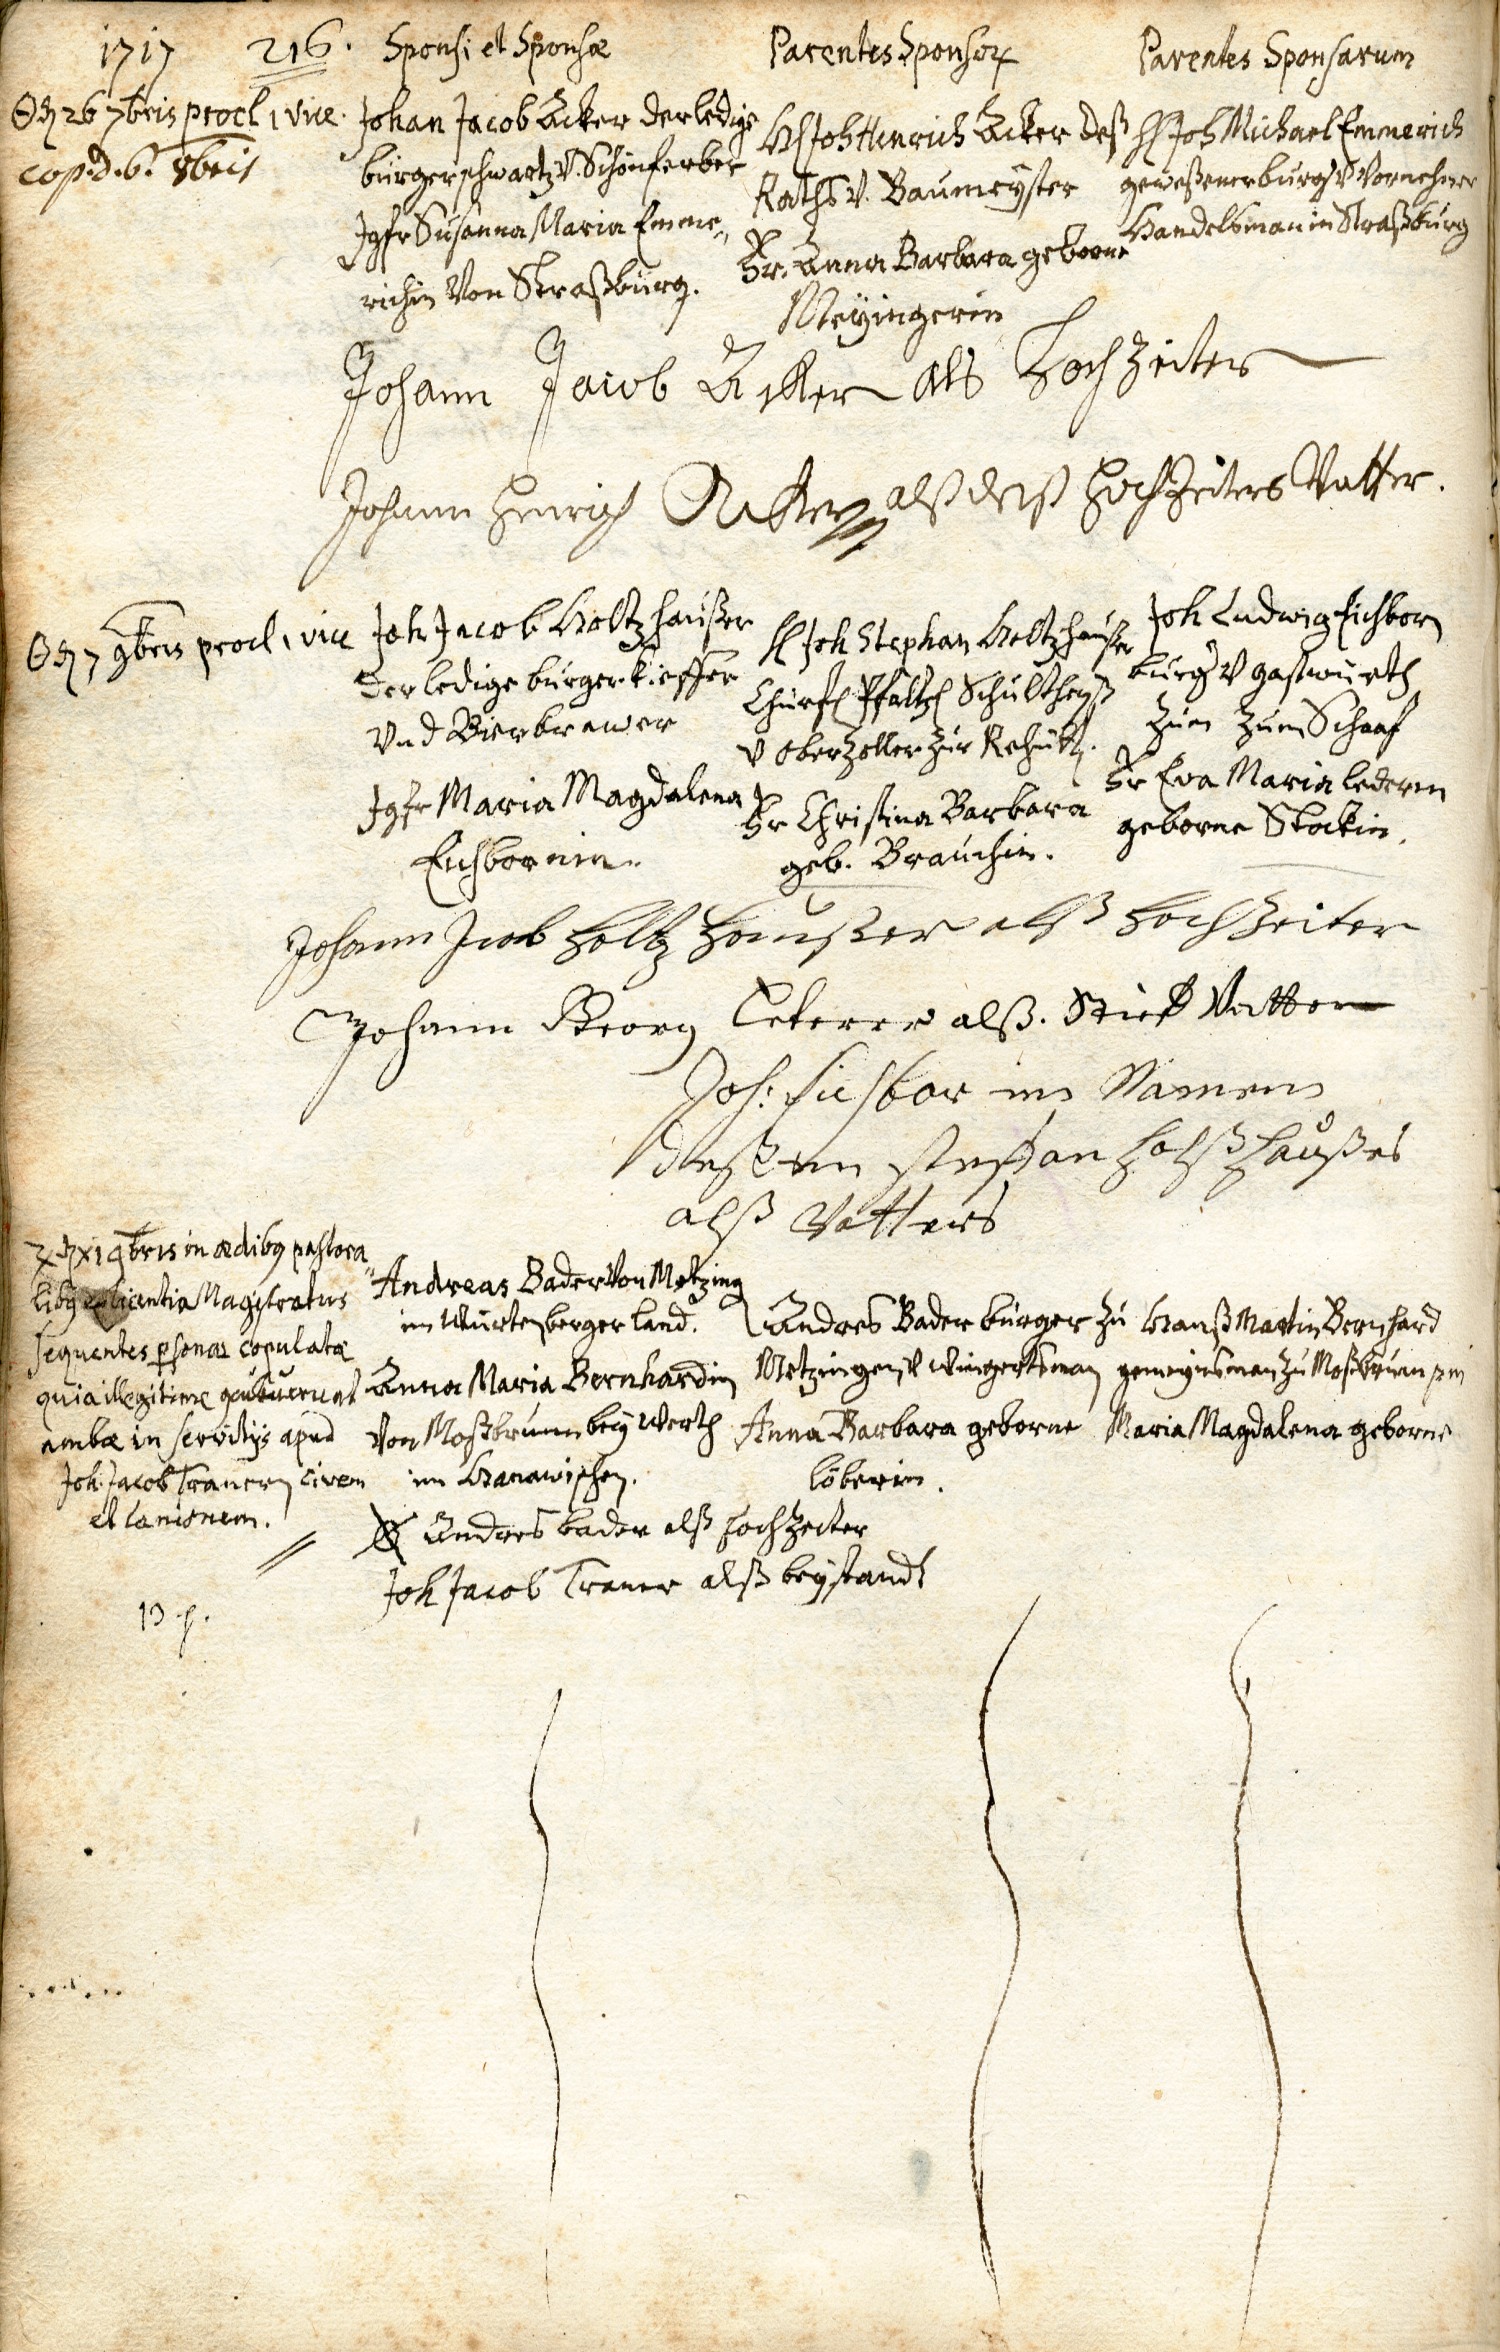 1717 216. Sponsi et Sponsæ Parentes Sponsor Parentes Sponsarum
26 7bris procl. 1 vice.
cop. d. 6. 8bris
Johan Jacob Acker der ledige
burger schwartz v. Schönferber
Jgfr Susanna Maria Emme„
richin von Straßburg.
H Joh Henrich Acker deß
Raths v. Baumeyster
Fr. Anna Barbara geborne
Meyingerin
H Joh Michael Emmerich
geweßener burgr v vornehmer
Handelsman in Straßburg
Johann Jacob Acker als Hochzeiter
Johann Henrich Acker alß deß Hochzeiters Vatter.
7 9bris procl. 1 vice
Joh Jacob Holtzhaußer
der ledige burger kieffer
und Bierbrawer
Jgfr Maria Magdalena
Eichbornin.
H Joh Stephan Holtzhaußer
Churf Pfaltz Schultheyß
v oberzoller zur Rehütt.
Fr Christina Barbara
geb. Brauchin.
Joh Ludwig Eichborn
burgr v gastwürth
zum zum Schaaf
Fr Eva Maria lederin
geborne Stockin.
Johann Jacob Holtz Haußer alß Hochzeiter
Johann Georg Lederer alß. Stieff Vatter
Joh: Eichbor im Namen
deß steffan Holtzhaußes
alß Vatters
XI 9bris in ædibg pastora„
libg licentia Magistratus
sequentes psonæ copulatæ
quia illegitime
ambæ in servitijs apud
Joh. Jacob Tranern civem
et lanionem.
Andreas Bader von Metzing
im Würtenberger land.
Anna Maria Bernhardin
von Moßbrunn bey Werth
im Hanawischen.
Andres Bader burger zu
Metzingen v wingertsman
Anna Barbara geborne
löberin.
Hanß Martin Bernhard
gemeynsman zu Moßbrunn
Maria Magdalena geborne
Andres bader alß Hochzeiter
Joh Jacob Traner alß beystandt
13 p.